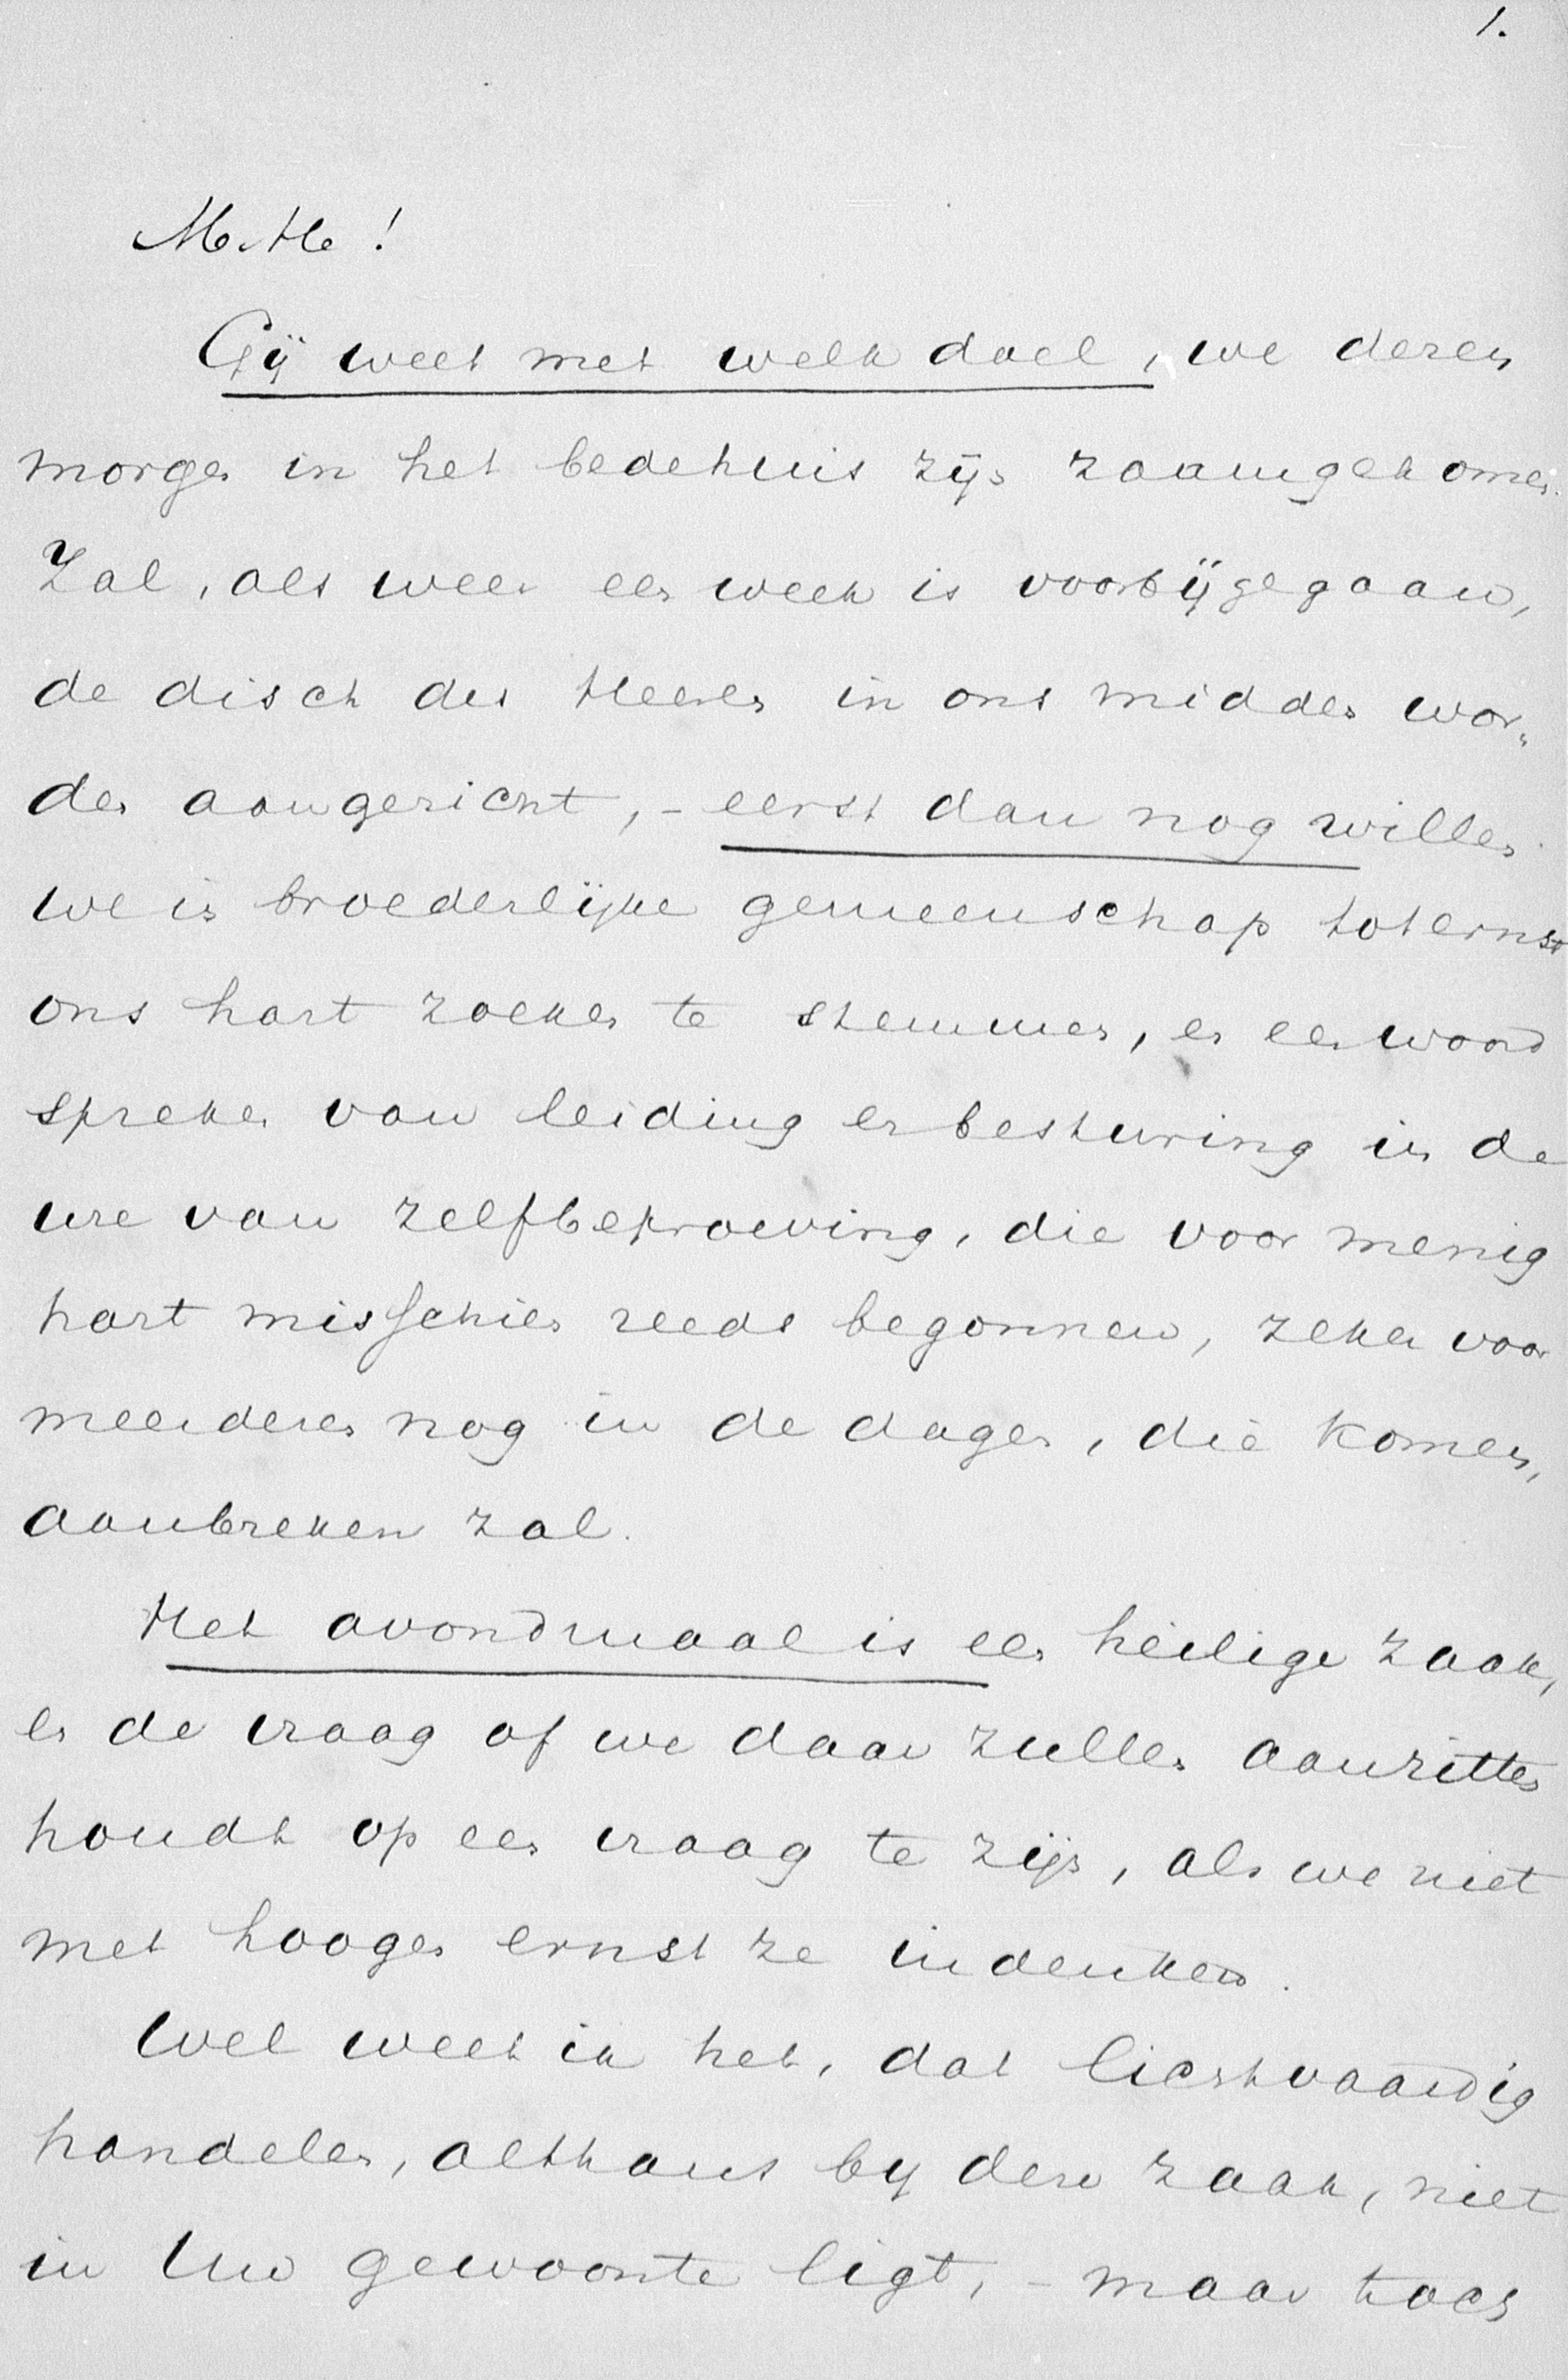 1.
M. H.!
Gij weet met welk doel, we dezen
morgen in het bedehuis zijn zaamgekomen.
Zal, als weer een week is voorbijgegaan,
de disch des Heeren in ons midden wor„
den aangericht, – eerst dan nog willen
we in broederlijke gemeenschap tot ernst
ons hart zoeken te stemmen, en een woord
spreken van leiding en besturing in de
ure van zelfbeproeving, die voor menig
hart misschien reeds begonnen, zeker voor
meerderen nog in de dagen, die komen,
aanbreken zal.
Het avondmaal is een heilige zaak,
en de vraag of we daar zullen aanzitten
houdt op een vraag te zijn, als we niet
met hoogen ernst ze indenken.
Wel weet ik het, dat lichtvaardig
handelen, althans by deze zaak, niet
in Uw gewoonte ligt, – maar toch